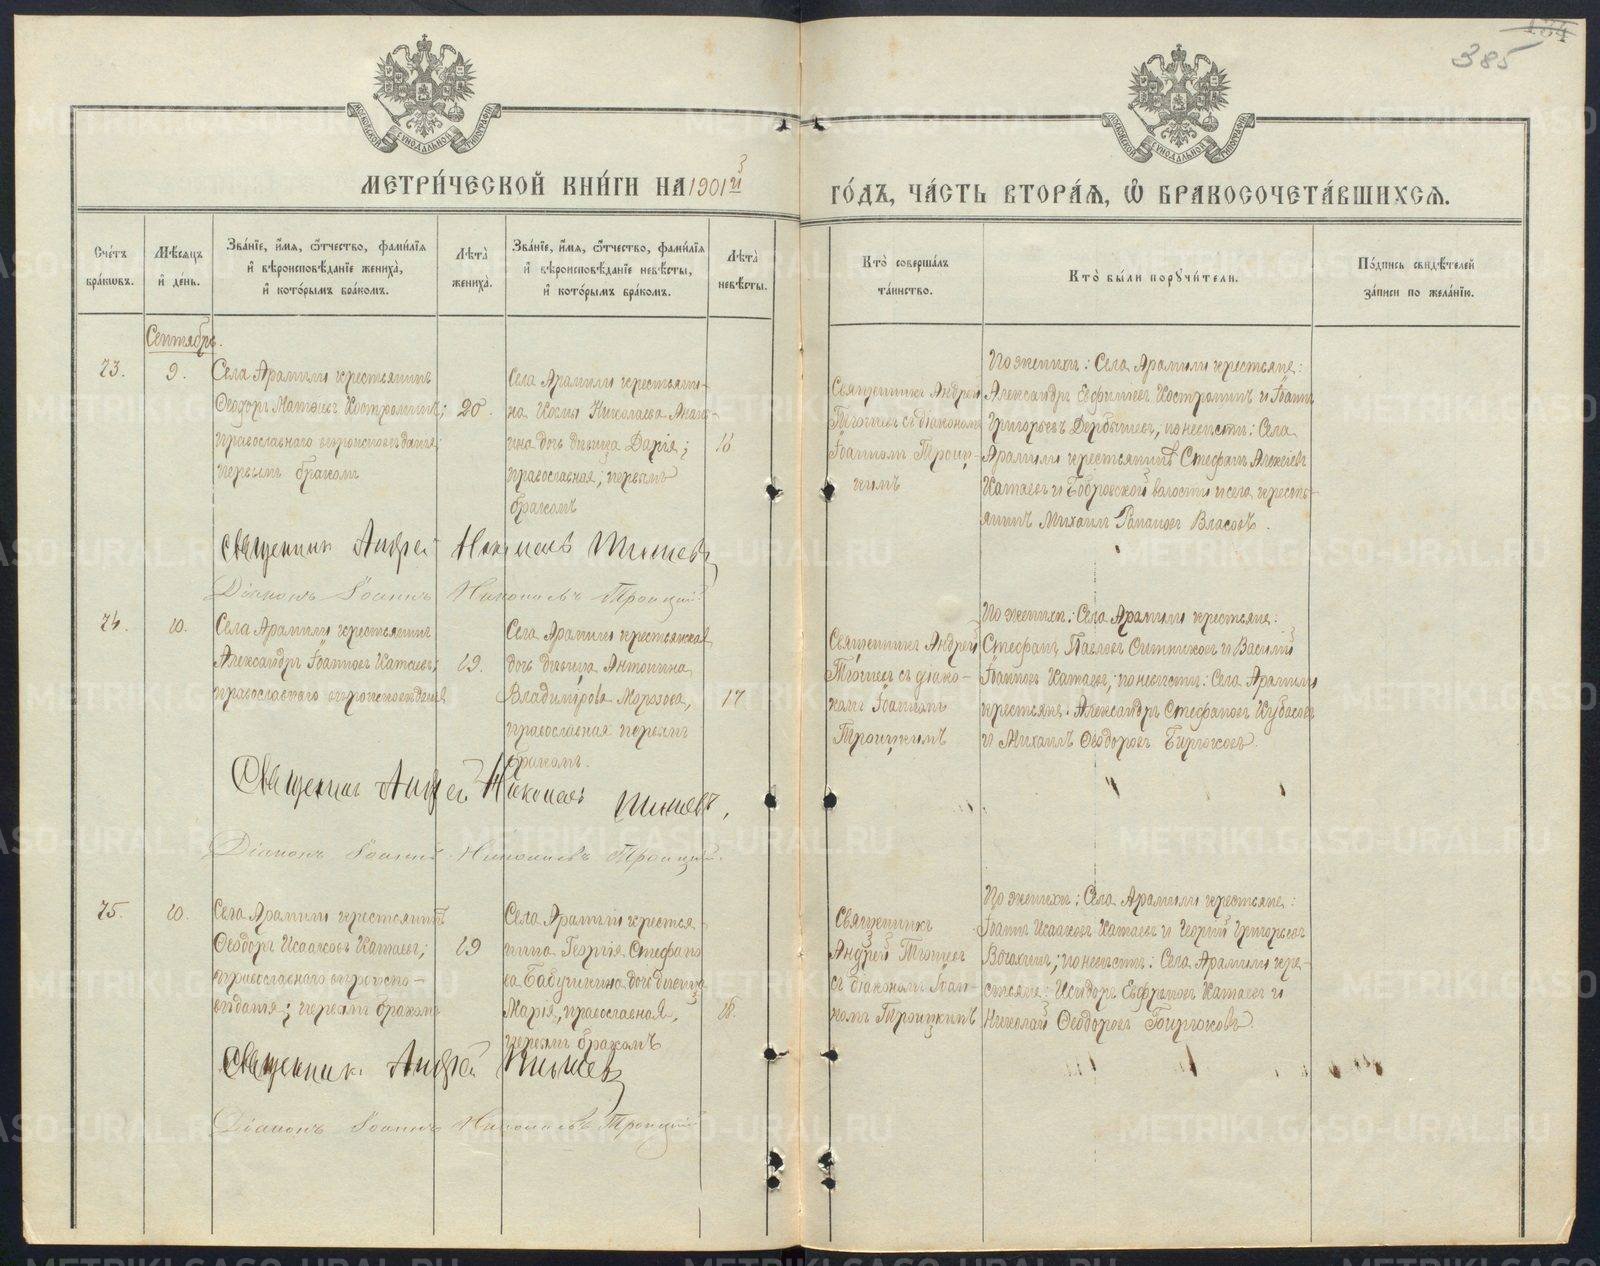 385
МЕТРИ́ЧЕСКОЙ КНИ́ГИ НА 1901й
ГО́ДЪ, ЧА́СТЬ ВТОРА́Я, Ѡ БРАКОСОЧЕТА́ВШИХСЯ.
МОСКОВСКОЙ СѴНОДАЛЬНОЙ ТИПОГРАФІИ
МОСКОВСКОЙ СѴНОДАЛЬНОЙ ТИПОГРАФІИ
Сче́тъ бра́кωвъ.
Мѣ́сяцъ и҆ де́нь.
Зва́нїе, и҆́мя, ѻ҆́тчество, фами́лїя и҆ вѣроисповѣ́данїе жениха̀, и҆ кото́рымъ бра́комъ.
Лѣ́та жениха̀.
Зва́нїе, и҆́мя, ѻ҆́тчество, фами́лїя и҆ вѣроисповѣ́данїе невѣ́сты, и҆ кото́рымъ бра́комъ.
Лѣ́та невѣ́сты.
Кто̀ соверша́лъ та́инство.
Кто̀ бы́ли порꙋчи́тели.
По́дпись свидѣ́телей за́писи по жела́нїю.
Сентябрь.
73.
9.
Села Арамили крестьянинъ
Ѳеодоръ Матѳіевъ Костроминъ;
православнаго вѣроисповѣданія;
первымъ бракомъ
20.
Села Арамили крестьяни-
на Николаева
дочь дѣвица Дарія;
православная, первымъ
бракомъ
16
Священникъ Андрей
съ діакономъ
Іоанномъ Троиц-
кимъ
По женихѣ: Села Арамили крестьяне:
Александръ Евфиміевъ Костроминъ и Іоаннъ
Григорьевъ Дербышевъ, по невѣстѣ: Села
Арамили крестьянинъ Стефанъ Алексѣевъ
Катаевъ и Бобровской волости и села, кресть-
янинъ Михаилъ Власовъ.
Священникъ Андрей Николаевъ
Діаконъ Іоаннъ Николаевъ Троицкій
74.
10.
Села Арамили крестьянинъ
Александръ Іоанновъ Катаевъ;
православнаго вѣроисповѣданія
19.
Села Арамили крестьянская
дочь дѣвица Антонина
Владимірова Морозова,
православная первымъ
бракомъ.
17
Священникъ Андрей
съ діако-
номъ Іоанномъ
Троицкимъ
По женихѣ: Села Арамили крестьяне:
Стефанъ Павловъ Ситниковъ и Василій
Іоанновъ Катаевъ; по невѣстѣ: Села Арамили
крестьяне: Александръ Стефановъ Кубасовъ
и Михаилъ Ѳеодоровъ Бирюковъ.
Священникъ Андрей Николаевъ
Діаконъ Іоаннъ Николаевъ Троицкій.
75.
10.
Села Арамили крестьянинъ
Ѳеодоръ Исааковъ Катаевъ;
православнаго вѣроиспо-
вѣданія; первымъ бракомъ
19
Села Арамили крестья-
нина Георгія Стефано-
ва Бабушкина дочь дѣвица
Марія, православная,
первымъ бракомъ
18.
Священникъ
Андрей
съ діакономъ Іоан-
номъ Троицкимъ
По женихѣ: Села Арамили крестьяне:
Іоаннъ Исааковъ Катаевъ и Георгій Григорьевъ
по невѣстѣ: Села Арамили кре-
стьяне: Исидоръ Евфремовъ Катаевъ и
Николай Ѳеодоровъ Бирюковъ
Священникъ Андрей
Діаконъ Іоаннъ Николаевъ Троицкій
METRIKI.GASO-URAL.RU